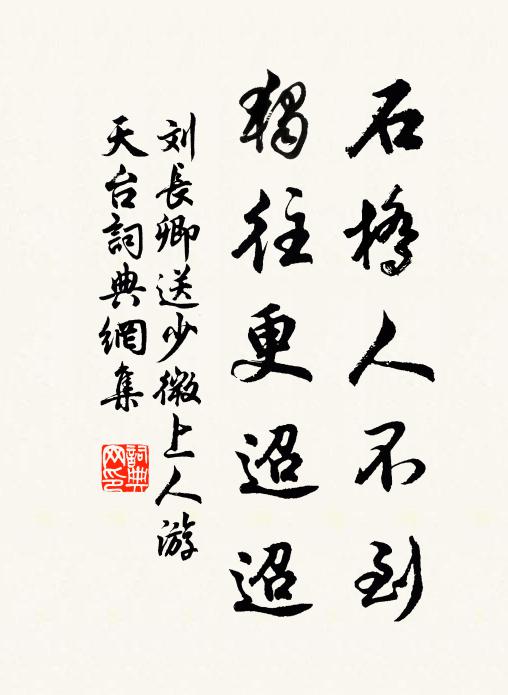 石橋人不到
獨往更迢迢
刘長卿送少微上人游
天台詞典網集
詞典网印